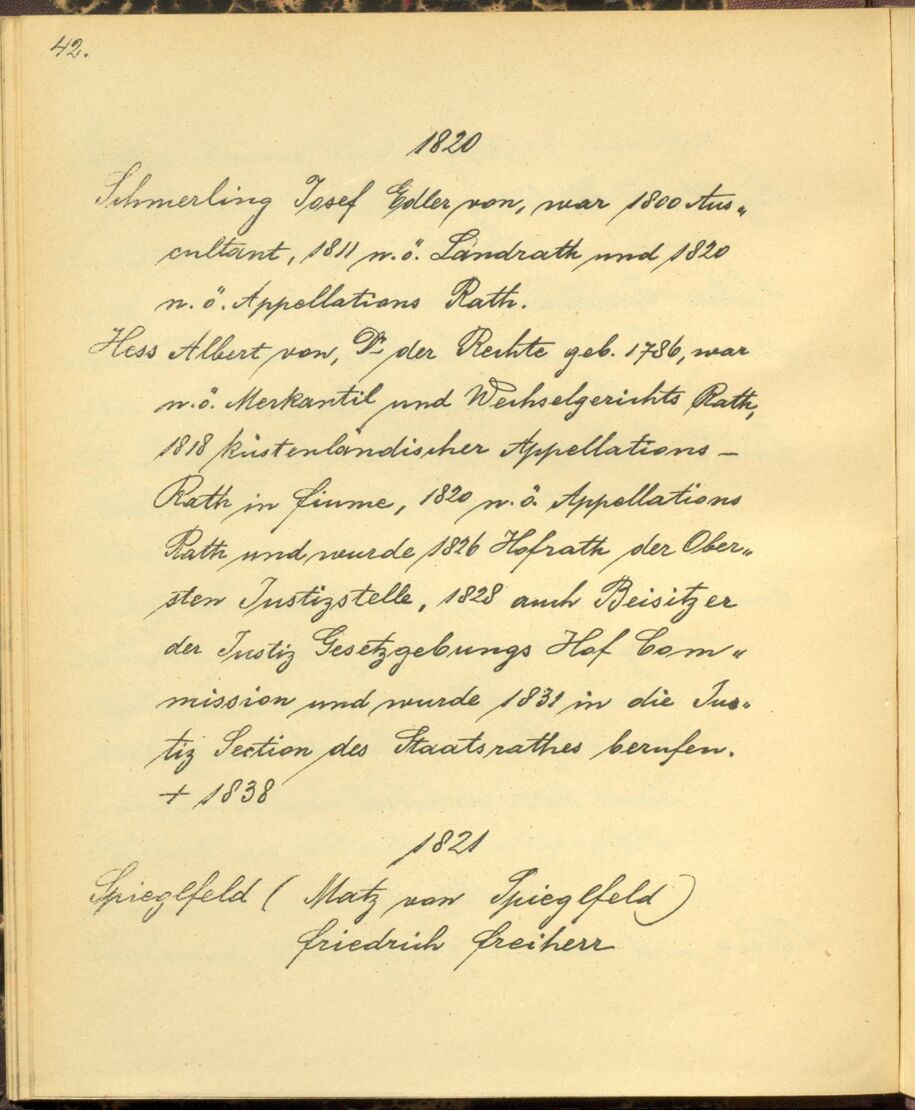 42.
1820
Schmerling Josef Edler von, war 1800 Aus„
cultant, 1811 n.ö. Landrath und 1820
n.ö. Appellations Rath.
Hess Albert von, Dr der Rechte geb. 1786, war
n.ö. Merkantil und Wechselgerichts Rath,
1818 küstenländischer Appellations –
Rath in Fiume, 1820 n.ö. Appellations
Rath und wurde 1826 Hofrath der Ober„
sten Justizstelle, 1828 auch Beisitzer
der Justiz Gesetzgebungs Hof Com„
mission und wurde 1831 in die Jus„
tiz Section des Staatsrathes berufen.
+ 1838
1821
Spieglfeld ( Matz von Spieglfeld)
Friedrich Freiherr